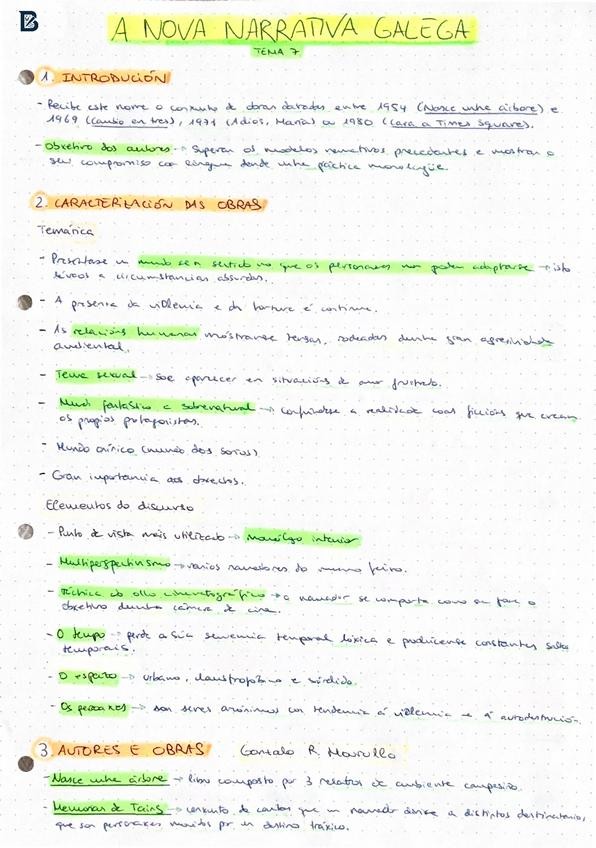 B
A NOVA NARRATIVA GALEGA
TEMA 7
1. INTRODUCIÓN
- Recibe este nome o conxunto de obras datadas entre 1954 (Nasce unha árbore) e
1969 (Cambio en tres), 1971 (Adios, María) ou 1980 (Cara a Times Square).
- Obxetivo dos autores → Superar os modelos narrativos precedentes e mostrar o
seu compromiso coa lingua dende unha práctica monolingüe.
2. CARACTERIZACIÓN DAS OBRAS
Temática
- Preséntase un mundo sen sentido no que os personaxes non poden adaptarse → isto
lévaos a circunstancias absurdas.
- A presenza da violencia e da tortura é continua.
- As relacións humanas móstranse tensas, rodeadas dunha gran agresividade
ambiental.
- Tema sexual → soe aparecer en situacións de amor frustrado.
- Mundo fantástico e sobrenatural → confúndese a realidade coas ficcións que crean
os propios protagonistas.
- Mundo onírico (mundo dos soños)
- Gran importancia aos obxectos.
Elementos do discurso
- Punto de vista máis utilizado → monólogo interior
- Multiperspectivismo → varios narradores do mesmo feito.
- Técnica do ollo cinematográfico → o narrador se comporta como se fose o
obxetivo dunha cámara de cine.
- O tempo → perde a súa secuencia temporal lóxica e prodúcense constantes saltos
temporais.
- O espazo → urbano, claustrofóbico e sórdido.
- Os personaxes → son seres anónimos con tendencia á violencia e á autodestrución.
3. AUTORES E OBRAS Gonzalo R. Mourullo
- Nasce unha árbore → libro composto por 3 relatos de ambiente campesiño.
- Memorias de Tains → conxunto de cartas que un narrador dirixe a distintos destinatarios,
que son personaxes movidos por un destino tráxico.